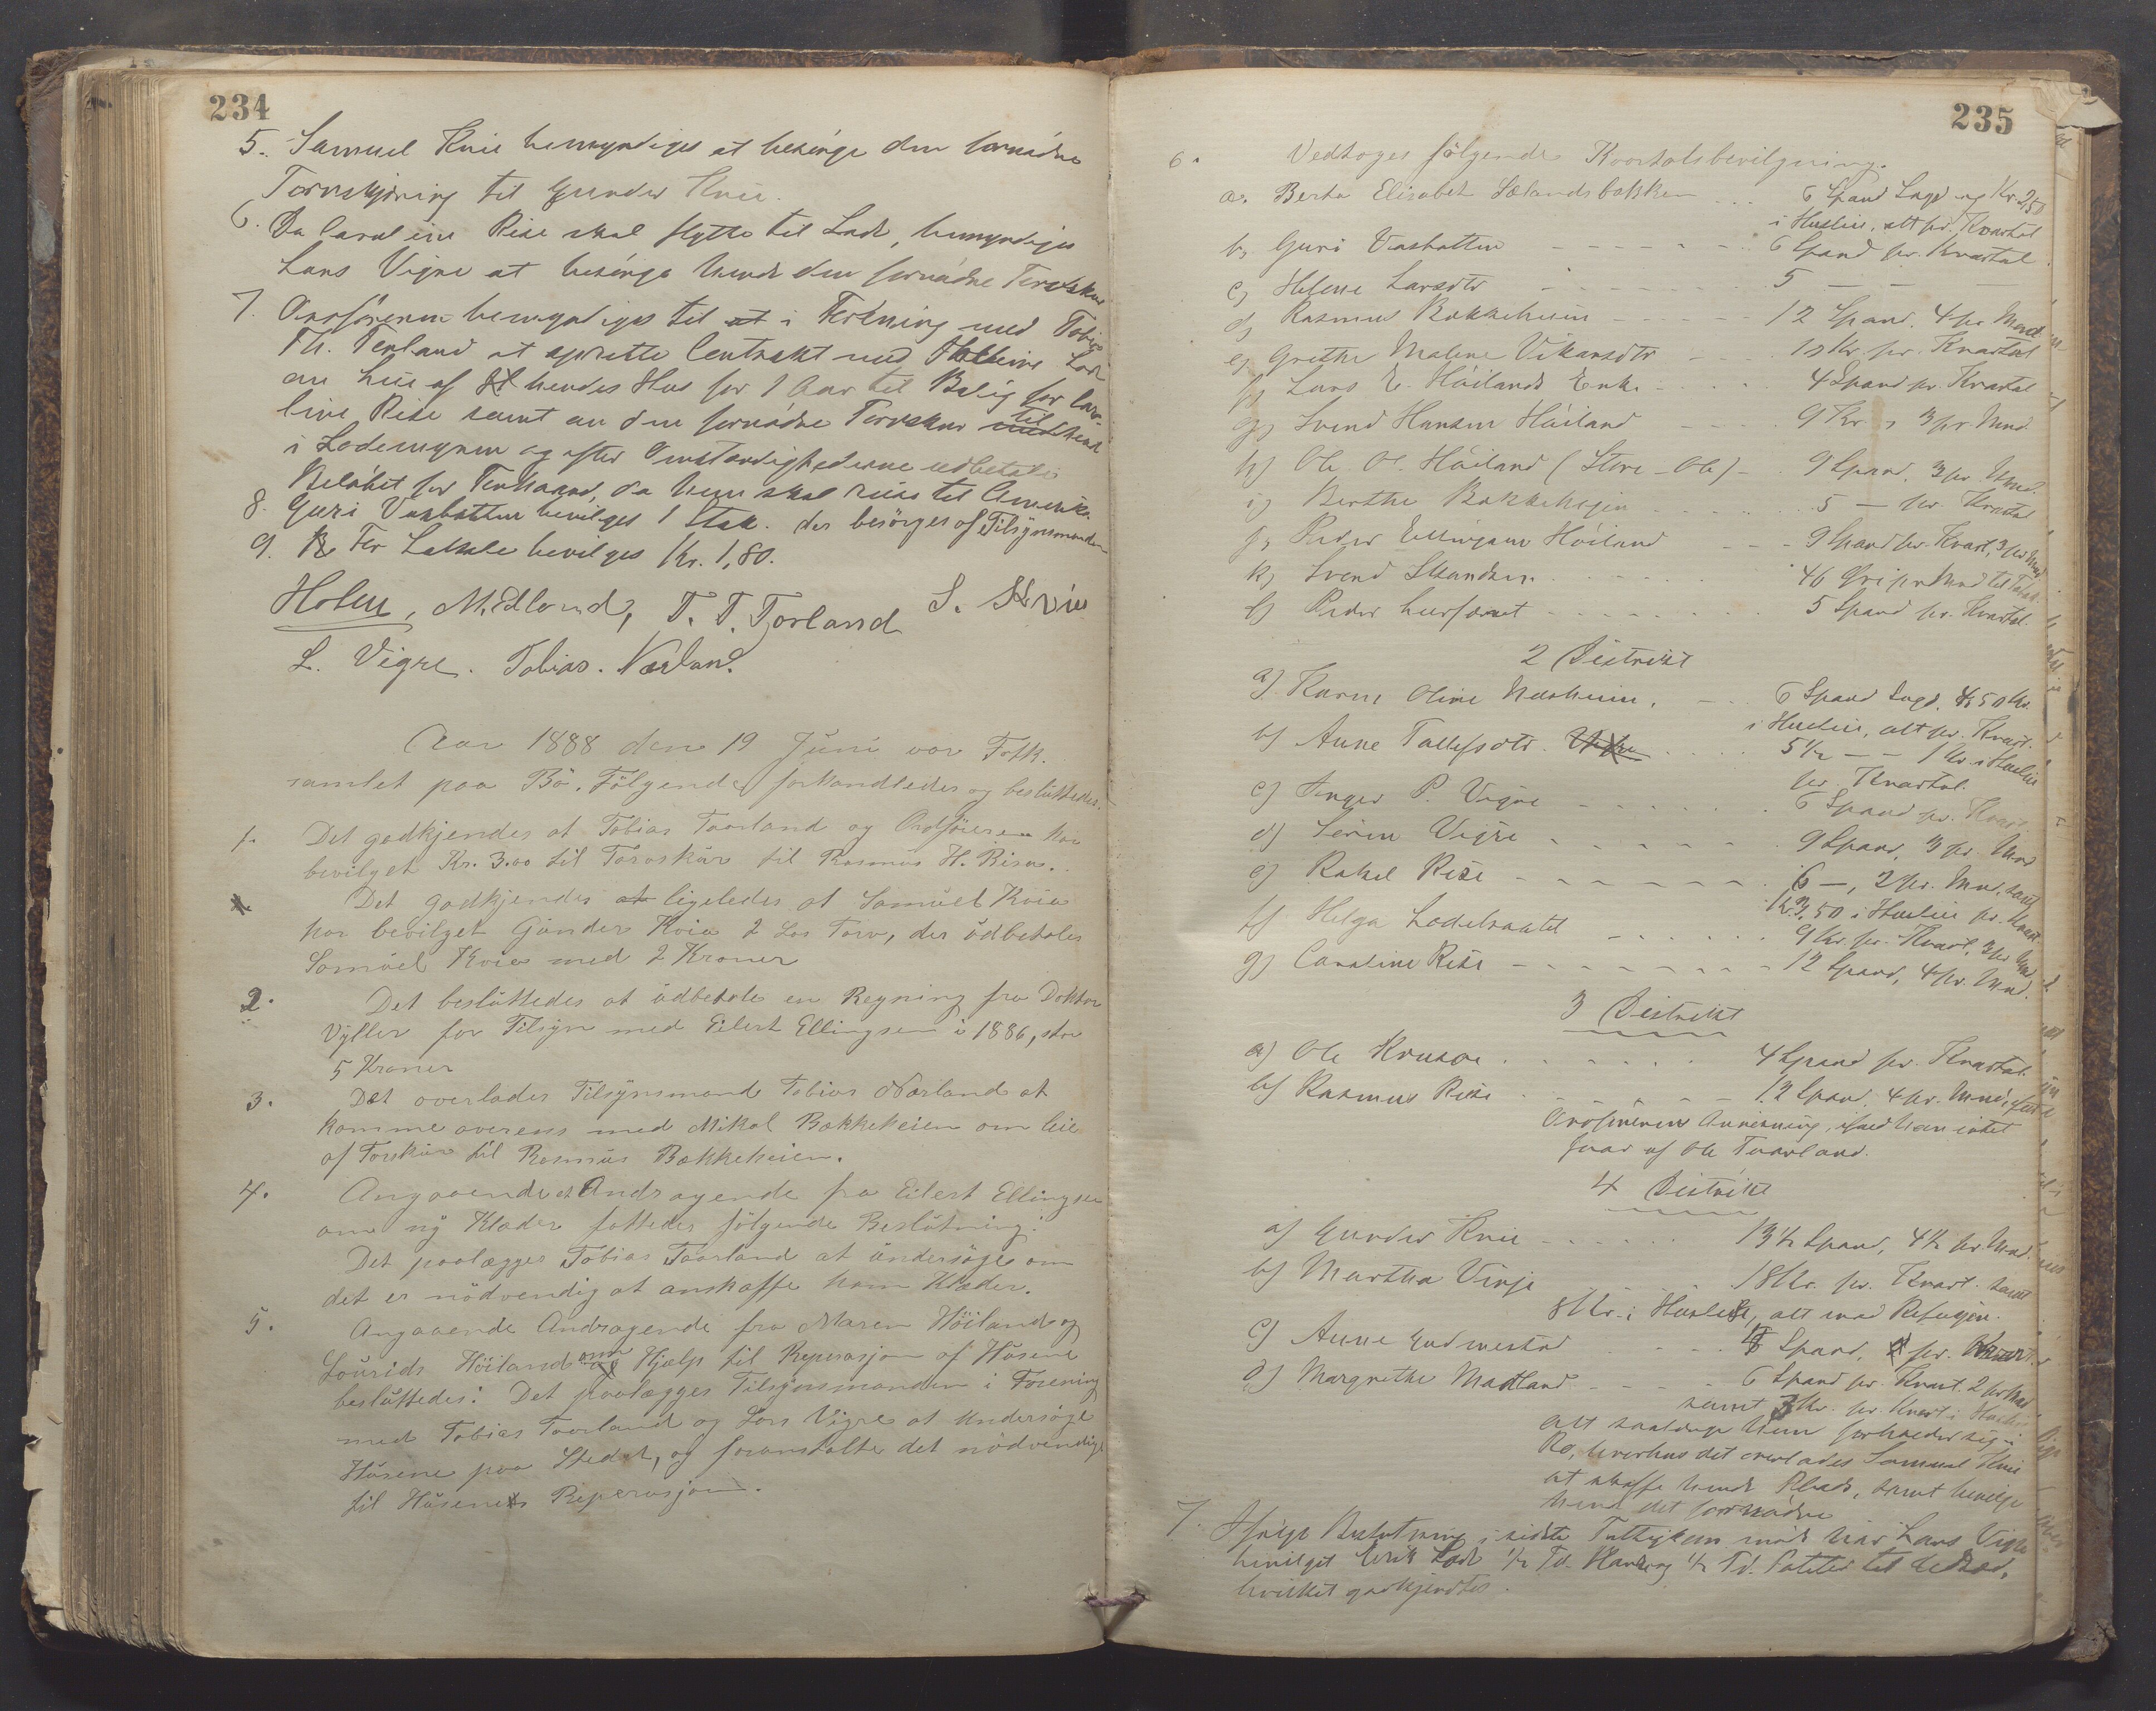 234
5. Samuel Kvie bemyndiges at besörge den fornödne
Tornskjæring til Gunder Kvie.
6. Da Caroline Rise skal flytte til Lode, bemyndiges
Lars Vigre at besörge hende den fornödne Torvskur
7. Ordföreren bemyndiges til at i Forening med Tobias
Th. Torland at oprette Contrakt med Lode
om Leie af hendes Hus for 1 Aar til Bolig for Caro-
line Rise samt om den fornödne Torvskur til hende
i Lodemyren og efter Omstændighederne udbetale
Belöbet for Forhaand, da hun skal reise til Amerika.
8. Guri Vasbotten bevilges 1 Stak. der besörges af Tilsynsmanden
9. For Lokale bevilges Kr. 1,80.
Holen, M. Edland, T. T. Torland S. Kvie
L. Vigre. Tobias. Nærland.
Aar 1888 den 19 Juni var Fatk.
samlet paa Bö. Fölgende forhandledes og besluttedes.
1. Det godkjendes at Tobias Taarland og Ordföreren har
bevilget Kr. 3.00 til Torvskür til Rasmus H. Risa.
Det godkjendes at ligeledes at Samüel Kvia
har bevilget Günder Kvia 2 Las Torv, der üdbetales
Samüel Kvia med 2 Kroner
2. Det beslüttedes at üdbetale en Regning fra Doktor
Vyller for Tilsyn med Eilert Ellingsen i 1886, stor
5 Kroner
3. Det overlades Tilsynsmand Tobias Nærland at
komme overens med Mikal Bækkeheien om leie
af Torskür til Rasmüs Bækkeheien.
4. Angaaende et Andragende fra Eilert Ellingsen
om ny Klæder fattedes fölgende Beslütning:
Det paalægges Tobias Taarland at ündersöge om
det er nödvendig at anskaffe ham Klæder.
5. Angaaende Andragende fra Maren Höiland og
Lourids Höiland om Hjælp til Reperasjon af Hüsene
beslüttedes: Det paalægges Tilsynsmanden i Forening
med Tobias Taarland og Lars Vigre at undersöge
Hüsene paa Stedet, og foranstalte det nödvendige
til Hüsenes Reperasjon.
235
6. Vedtoges fölgende Kvartalsbevilgning.
a. Berta Elisabet Sælandsbakken . . . 6 Spand Sagd og Kr. 2,50
i Husleie, alt pr. Kvartal
b, Guri Vasbotten - - - - - 6 Spand pr. Kvartal
c, Helene Larsdtr - - - - - 5 — —
d, Rasmus Bækkeheien - - - - - 12 Spand, 4 pr. Mnd
e, Grethe Malene Vikansdtr - - 18 Kr. pr. Kvartal
f, Lars E. Höilands Enke - . . . 4 Spand pr. Kvartal
g, Svend Hansen Höiland - - 9 Kr. , 3 pr. Mnd.
h) Ole Ol. Höiland (Store-Ole) - . 9 Spand, 3 pr. Mnd.
i, Berthe Bækkeheien . . . . . 5 — pr. Kvartal
j, Peder Ellingsen Höiland - - - 9 Spand pr. Kvart, 3 pr Mnd
k, Svend Skandsen . . . . . . 46 Öre pr Mnd til Tobak
l) Peder - - - - - 5 Spand pr. Kvartal.
2 Distrikt
a). Karen Oline Nesheim. — . . 6 Spand Sagd, 4,50 Kr.
i Husleie, alt pr. Kvart.
b) Anne Tollefsdtr. . . . 5 1/2 — — 1 Kr. i Husleie
pr. Kvartal.
c) Inger P. Vigre - - - - - 6 Spand pr. Kvart.
d) Sören Vigre . . . . . . . 9 Spand, 3 pr. Mnd
e) Rakel Rise - - - - - - 6 —, 2 pr. Mnd, samt
Kr. 3,50 i Husleie pr. Kvart.
f) Helga Lodetraatet - - . . . 9 Kr. pr. Kvart, 3 pr Mnd.
g) Caroline Rise - - - - - - 12 Spand, 4 pr. Mnd.
3 Distrikt
a) Ole Krusøe . . . . . . 4 Spand pr. Kvartal.
b) Rasmus Rise . - - - - 12 Spand, 4 pr. Mnd, efter
Ordförerens Anvisning, ifald han intet
faar af Ole Taarland.
4 Distrikt
a) Gunder Kvie - . . . . . 13 1/2 Spand, 4 1/2 pr. Mnd.
b) Martha Virje . . . . 18 Kr. pr. Kvart. samt
8 Kr. i Husleie, alt mod Refusjon.
c) Anne Gudmestad . . . . . Spand, pr. Kvart.
d) Margrethe Madland - - - 6 Spand pr. Kvart. 2 pr Mnd
samt 3 Kr. pr. Kvart i Husleie
alt saalænge hun forholder sig i
Ro, hvorhos det overlades Samuel Kvie
at skaffe hende Plads, samt bevilge
hende det fornödne
7. Ifölge Beslutning i sidste Fattigkom.möde har Lars Vigre
bevilget Erik Lode 1/2 Td. Havre og 1/2 Td. Poteter til Udsæd,
hvilket godkjendtes.